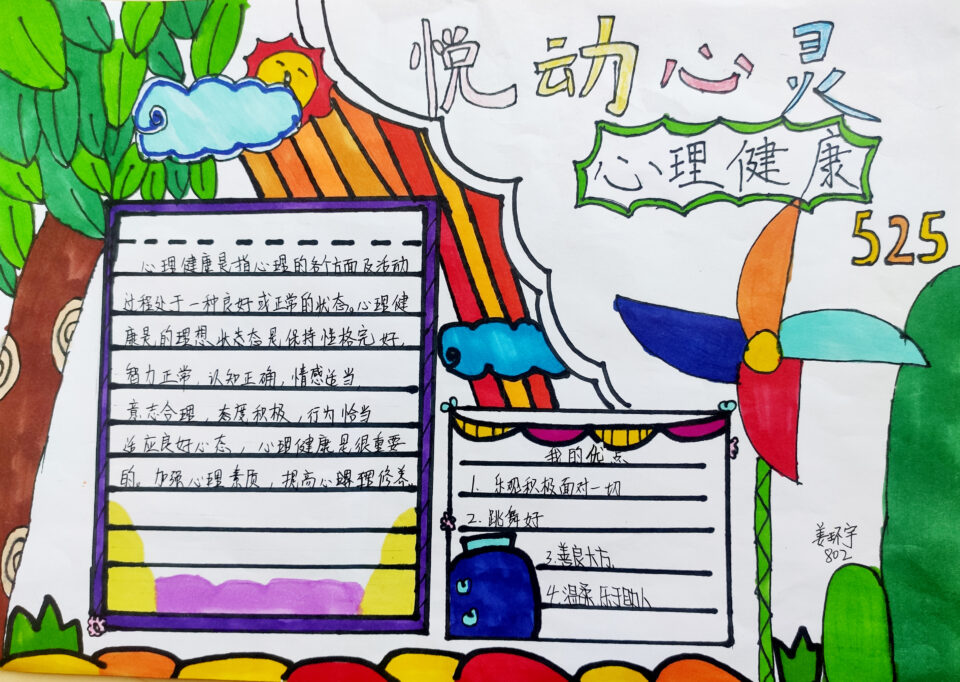 悦动心灵
心理健康
525
心理健康是指心理的各个方面及活动
过程处于一种良好或正常的状态。心理健
康是的理想状态态是保持性格完好,
智力正常,认知正确,情感适当,
意志合理,态度积极,行为恰当
适应良好心态,心理健康是很重要
的。加强心理素质,提高心理修养。
我的优点
1. 乐观积极面对一切
2. 跳舞好
3.善良大方,
4.温柔 乐于助人
姜环宇
802